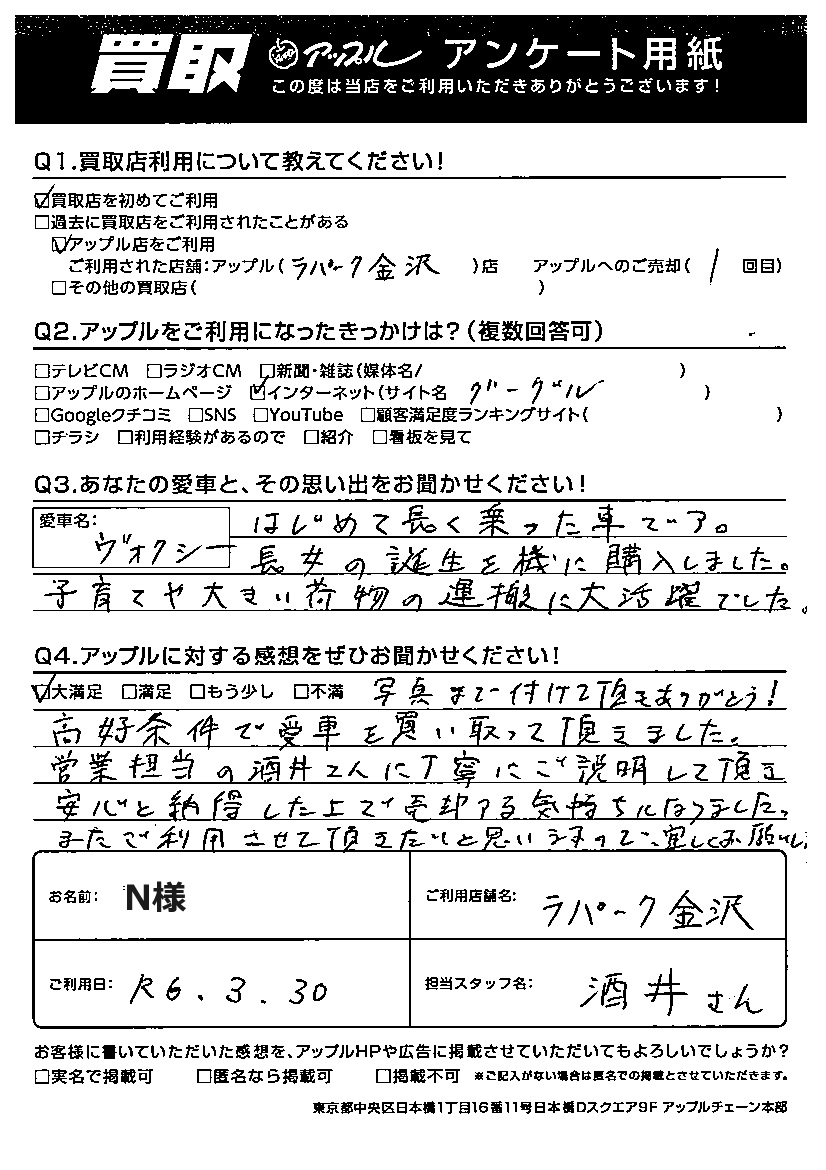 買取 アップル アンケート用紙
この度は当店をご利用いただきありがとうございます!
Q1.買取店利用について教えてください!
☑買取店を初めてご利用
□過去に買取店をご利用されたことがある
☑アップル店をご利用
ご利用された店舗:アップル(ラパーク金沢)店 アップルへのご売却(1回目)
□その他の買取店( )
Q2.アップルをご利用になったきっかけは?(複数回答可)
□テレビCM □ラジオCM □新聞・雑誌(媒体名/ )
□アップルのホームページ ☑インターネット(サイト名 グーグル )
□Googleクチコミ □SNS □YouTube □顧客満足度ランキングサイト( )
□チラシ □利用経験があるので □紹介 □看板を見て
Q3.あなたの愛車と、その思い出をお聞かせください!
愛車名: ヴォクシー はじめて長く乗った車です。
長女の誕生を機に購入しました。
子育てや大きい荷物の運搬に大活躍でした。
Q4.アップルに対する感想をぜひお聞かせください!
☑大満足 □満足 □もう少し □不満 写真まで付けて頂きありがとう!
高好条件で愛車を買い取って頂きました。
営業担当の酒井さんに丁寧にご説明して頂き
安心と納得した上で売却する気持ちになりました。
またご利用させて頂きたいと思いますので、宜しくお願いし
お名前: N様 ご利用店舗名: ラパーク金沢
ご利用日: R6.3.30 担当スタッフ名: 酒井さん
お客様に書いていただいた感想を、アップルHPや広告に掲載させていただいてもよろしいでしょうか?
□実名で掲載可 □匿名なら掲載可 □掲載不可 ※ご記入がない場合は匿名での掲載とさせていただきます。
東京都中央区日本橋1丁目16番11号日本橋Dスクエア9F アップルチェーン本部